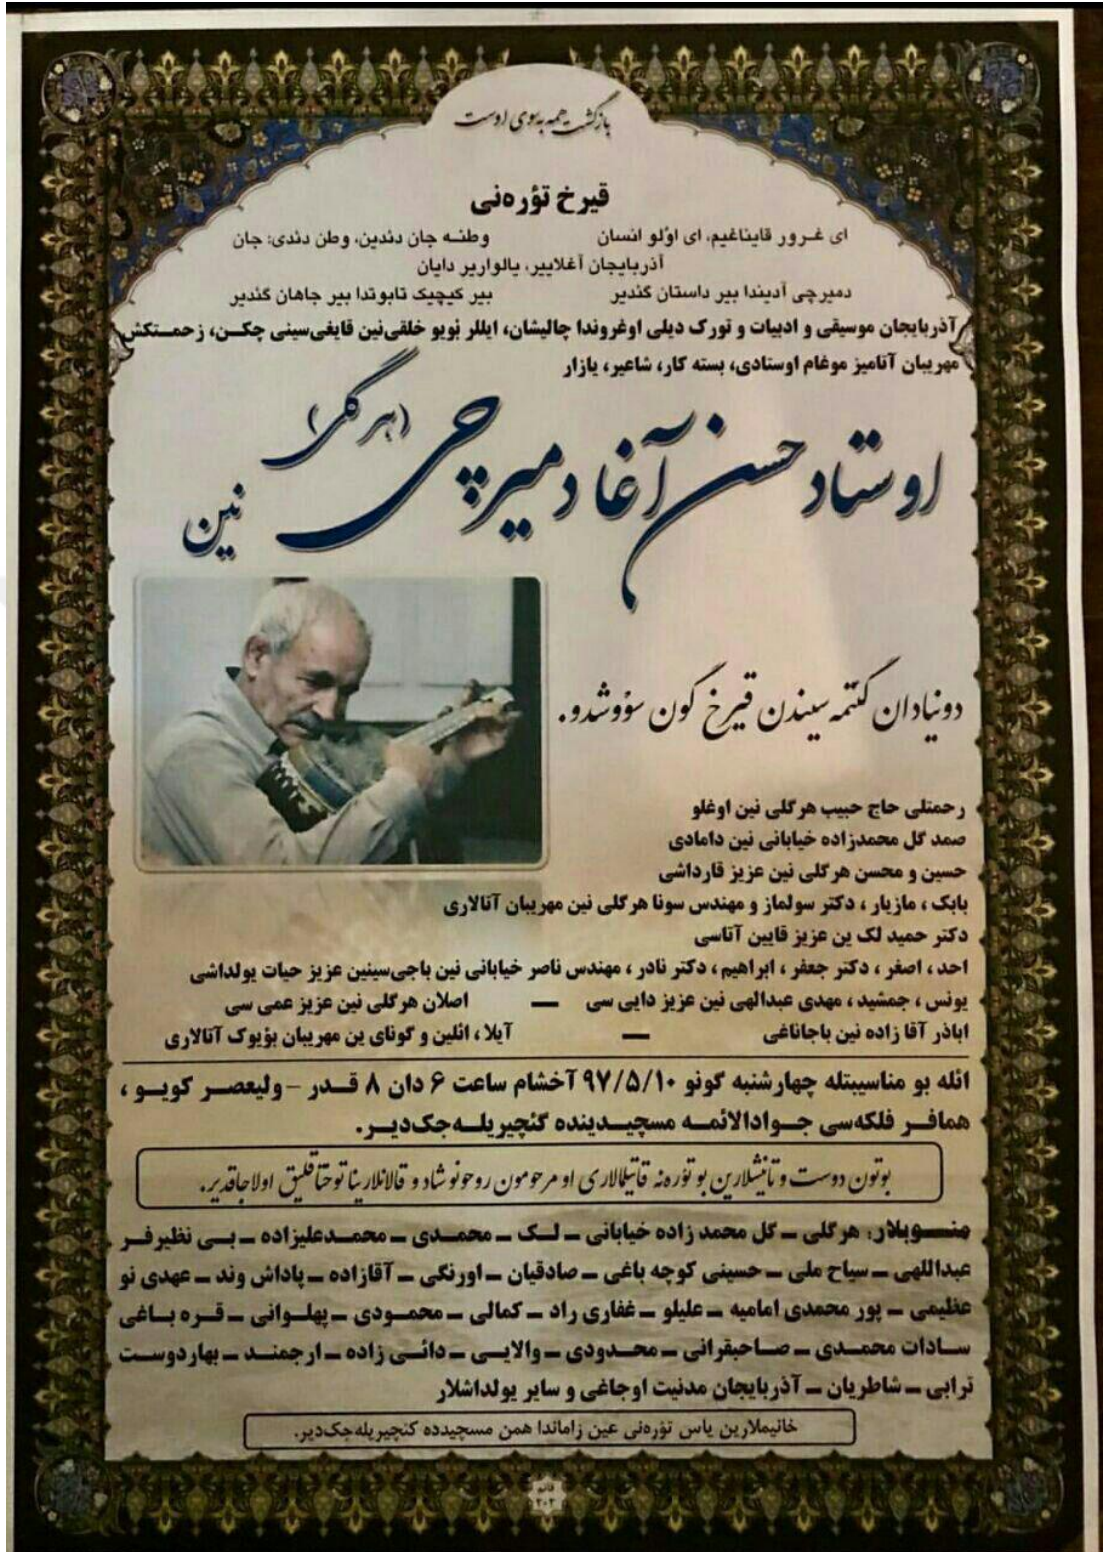 بازگشت همه به سوی اوست
قیرخ تؤره‌نی
ای غرور قایناغیم، ای اؤلو انسان وطنه جان دئدین، وطن دئدی: جان
آذربایجان آغلاییر، یالواریر دایان
دمیرچی آدیندا بیر داستان گئدیر بیر کیچیک تابوتدا بیر جاهان گئدیر
آذربایجان موسیقی و ادبیات و تورک دیلی اوغروندا چالیشان، ایللر بویو خلقی‌نین قایغی‌سینی چکن، زحمتکش
مهریبان آنامیز موغام اوستادی، بسته کار، شاعیر، یازار
اوستاد حسن آغا دمیرچی (هرگلی) نین
دونیادان گئتمه سیندن قیرخ گون سؤوشدو.
رحمتلی حاج حبیب هرگلی نین اوغلو
صمد گل محمدزاده خیابانی نین دامادی
حسین و محسن هرگلی نین عزیز قارداشی
بابک ، مازیار ، دکتر سولماز و مهندس سونا هرگلی نین مهریبان آتالاری
دکتر حمید لک ین عزیز قایین آتاسی
احد ، اصغر ، دکتر جعفر ، ابراهیم ، دکتر نادر ، مهندس ناصر خیابانی نین باجی‌سینین عزیز حیات یولداشی
یونس ، جمشید ، مهدی عبدالهی نین عزیز دایی سی — اصلان هرگلی نین عزیز عمی سی
اباذر آقا زاده نین باجاناغی — آیلا ، ائلین و گونای ین مهریبان بؤیوک آتالاری
ائله بو مناسیبتله چهارشنبه گونو ۹۷/۵/۱۰ آخشام ساعت ۶ دان ۸ قدر – ولیعصر کویو ،
همافر فلکه‌سی جوادالائمه مسجیدینده گئچیریله‌جک‌دیر.
بوتون دوست و تانیشلارین بو تؤره‌نه قاتیلمالاری او مرحومون روحونو شاد و قالانلارینا توختاقلیق اولاجاقدیر.
منسوبلار: هرگلی ـ گل محمد زاده خیابانی ـ لک ـ محمدی ـ محمدعلیزاده ـ بی نظیرفر
عبداللهی ـ سیاح ملی ـ حسینی کوچه باغی ـ صادقیان ـ اورنگی ـ آقازاده ـ پاداش وند ـ عهدی نو
عظیمی ـ پور محمدی امامیه ـ علیلو ـ غفاری راد ـ کمالی ـ محمودی ـ پهلوانی ـ قره باغی
سادات محمدی ـ صاحبقرانی ـ محدودی ـ والایی ـ دائی زاده ـ ارجمند ـ بهاردوست
ترابی ـ شاطریان ـ آذربایجان مدنیت اوجاغی و سایر یولداشلار
خانیملارین یاس تؤره‌نی عین زاماندا همن مسجیدده کئچیریله‌جک‌دیر.
قائم
۲۰۲